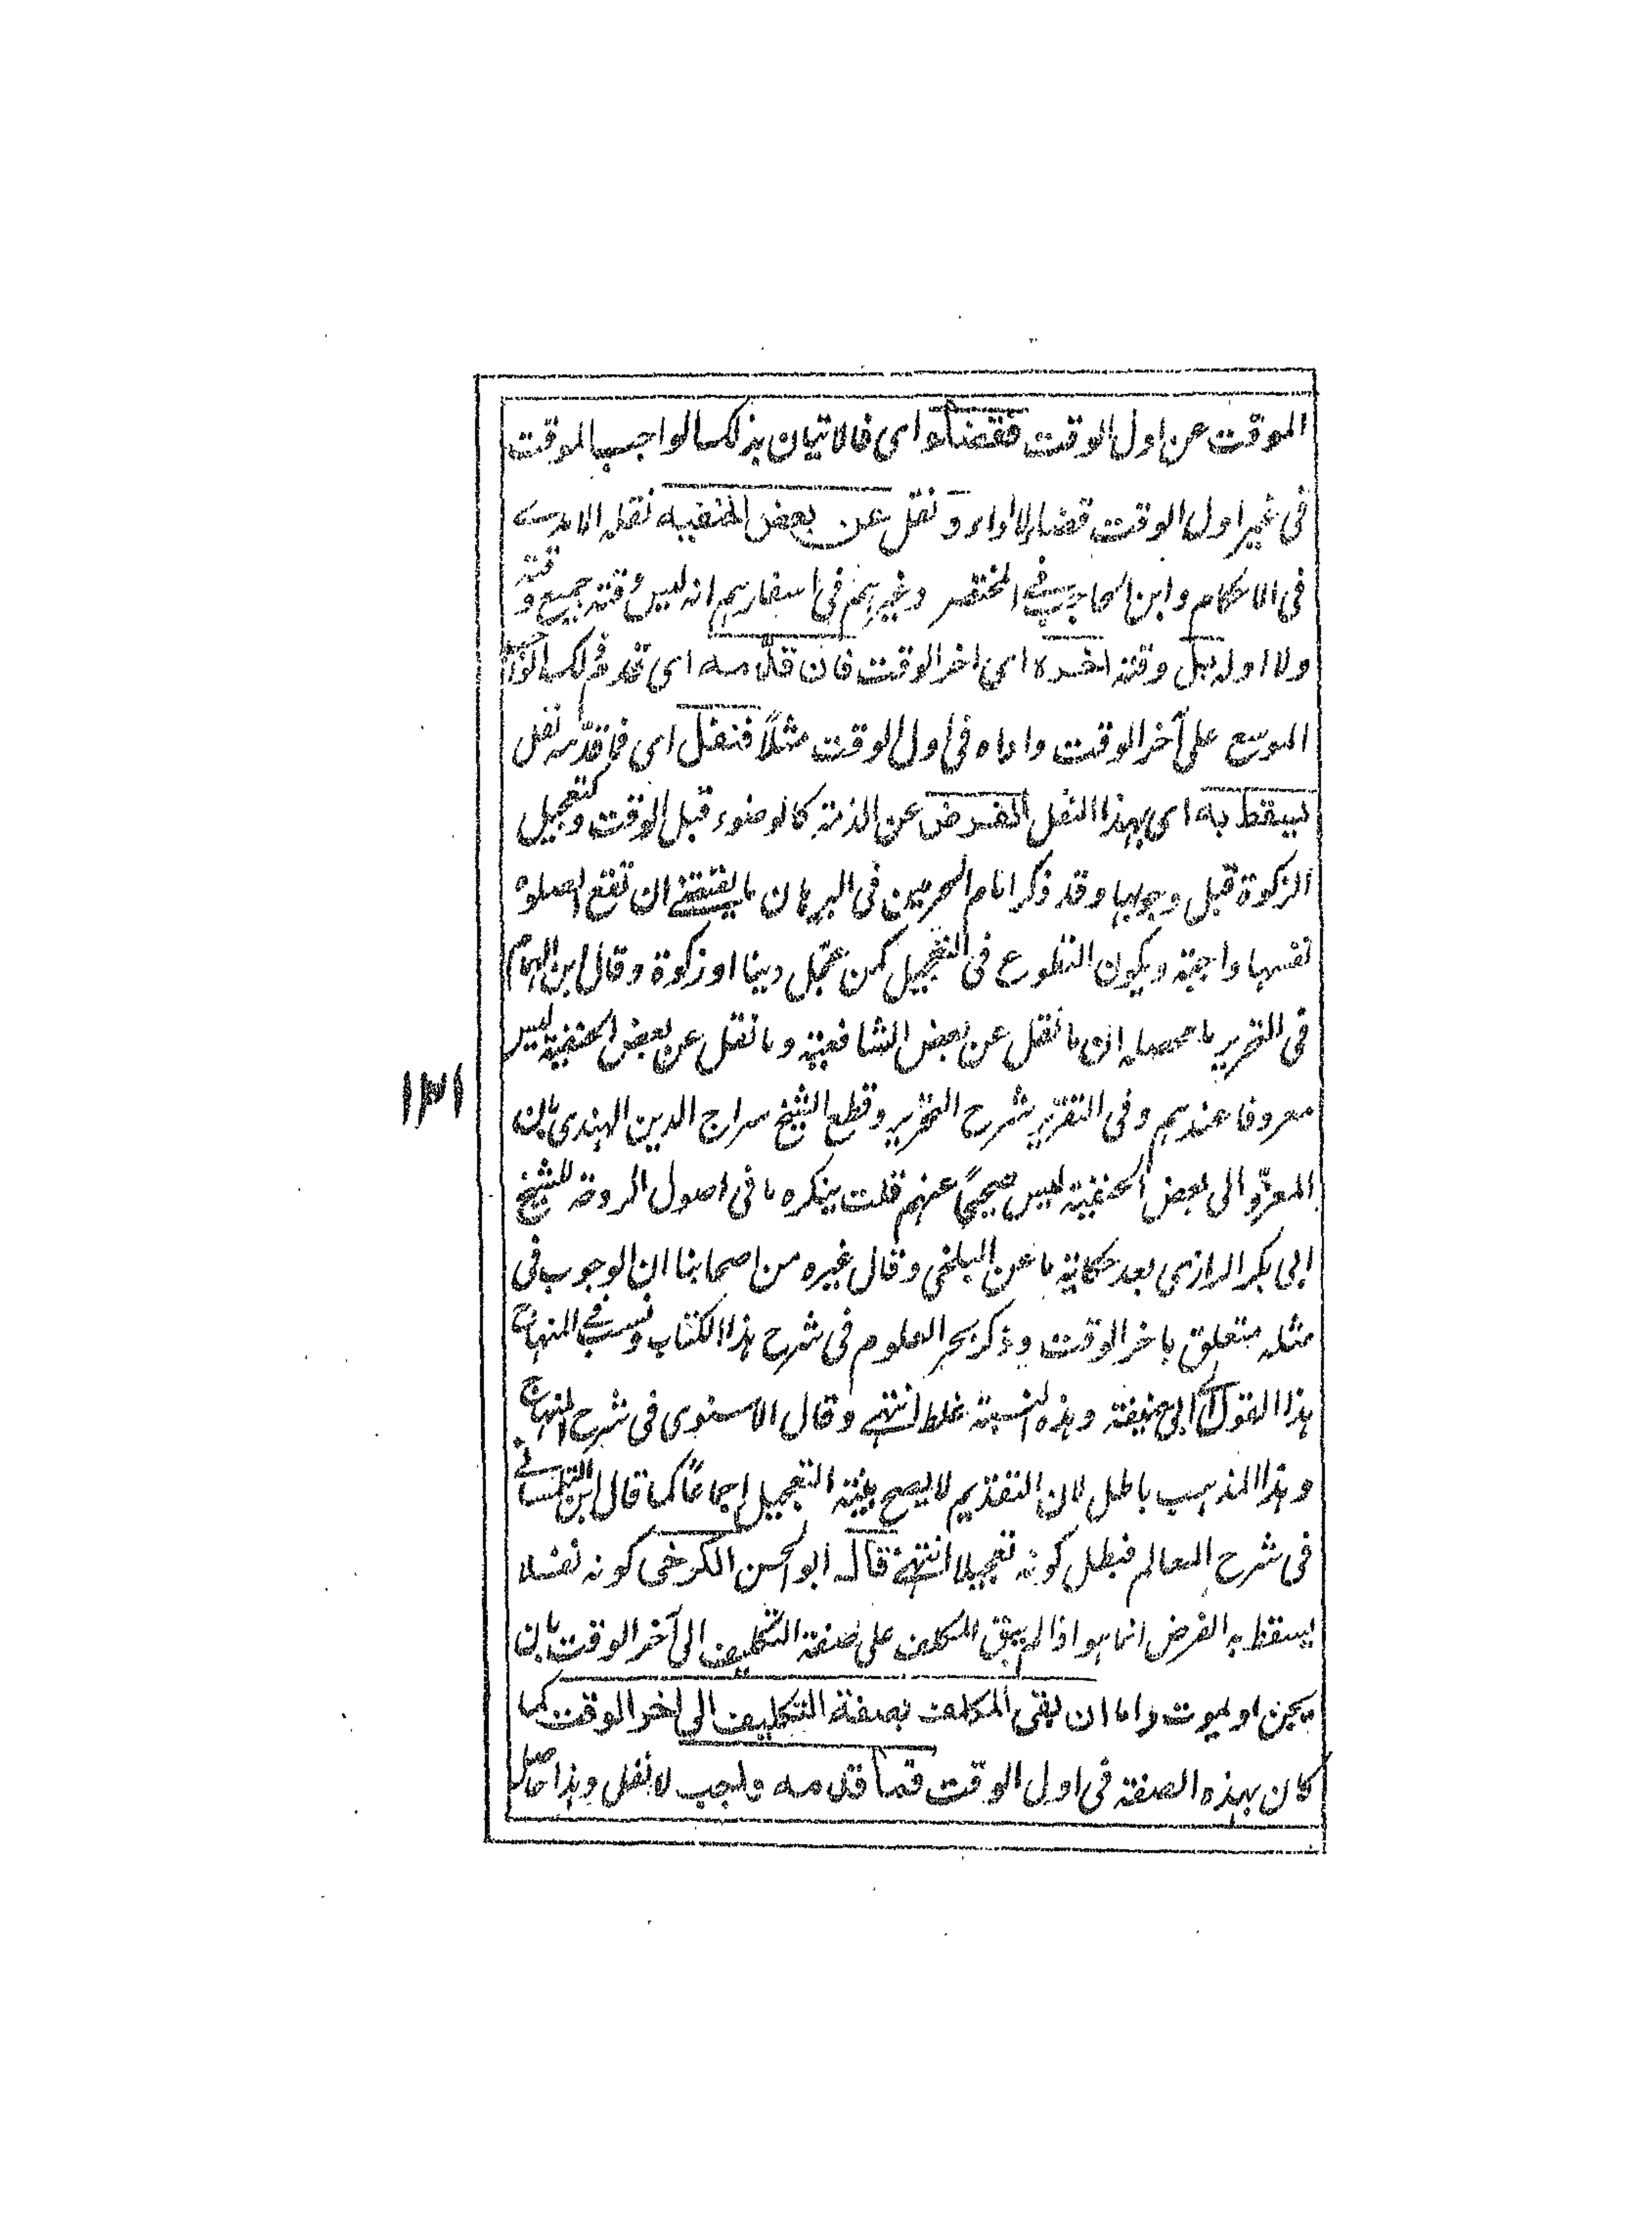 الموقت عن اول الوقت فقضاء اى فالاتيان بذلك الواجب الموقت
فى غير اول الوقت قضاء لا اداء و نقل عن بعض الحنفيه نقله الامدے
فى الاحكام و ابن الحاجب فے المختصر و غيرهم فى اسفارهم انه ليس وقته جميع وقته
ولا اوله بل وقته اخره اى اخر الوقت فان قدمه اى قدم ذلك
الموسع على آخر الوقت واداه فى اول الوقت مثلاً فنفل اى فما قدّمه نفل
يسقط به اى بهذا النفل الفرض عن الذمة كالوضوء قبل الوقت و كتعجيل
الزكوة قبل وجوبها وقد ذكر امام الحرمين فى البرهان ما يقتضے ان تقع الصلوة
نفسها واجبة و يكون التطوع فى التعجيل كمن عجّل دينا او زكوة و قال ابن الهمام
فى التحرير ما محصله ان ما نقل عن بعض الشافعية و ما نقل عن بعض الحنفية ليس
معروفا عندهم و فى التقرير شرح التحرير و قطع الشيخ سراج الدين الهندى بان
المعزوّ الى بعض الحنفية ليس صحيحاً عنهم قلت ينكره ما فى اصول الروضة للشيخ
ابى بكر الرازى بعد حكاية ما عن البلخى و قال غيره من اصحابنا ان الوجوب فى
مثله متعلق باخر الوقت و ذكر بحر العلوم فى شرح هذا الكتاب و نسب فے المنهاج
هذا القول الى ابى حنيفة و هذه النسبة غلط انتهے و قال الاسنوى فى شرح المنهاج
و هذا المذهب باطل لان التقديم لا يصح بنية التعجيل اجماعاً كما قال ابن التلمسانے
فى شرح المعالم فبطل كونه تعجيلا انتهے قال ابو الحسن الكرخى كونه نفلا
يسقط به الفرض انما هو اذا لم يبق المكلف على صفة التكليف الى آخر الوقت بان
يجن او يموت و اما ان بقى المكلف بصفة التكليف الى اخر الوقت كما
كان بهذه الصفة فى اول الوقت فما قدمه واجب لا نفل و هذا حاصل
١٣١